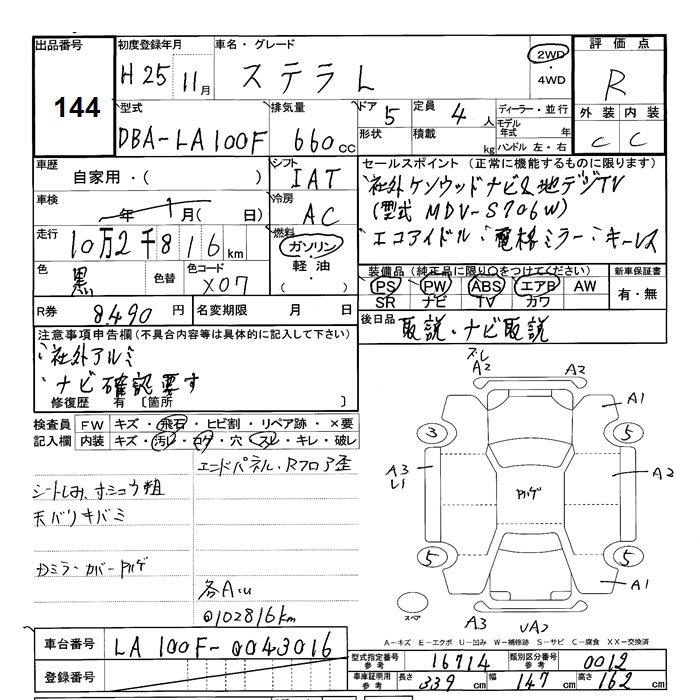 出品番号 初度登録年月 車名・グレード 評価点
144
H25 11月 ステラ L 2WD・4WD R
型式 排気量 ドア 5 定員 4人 ディーラー・並行 外装 内装
DBA-LA100F 660cc 形状 積載 kg モデル年式 年 ハンドル 左・右 C C
車歴 シフト セールスポイント (正常に機能するものに限ります)
自家用・( ) IAT 社外ケンウッドナビ&地デジTV
車検 年 1月( 日) 冷房 AC (型式 MDV-S706W)
走行 10万2千816km 燃料 ガソリン・軽油・( ) エコアイドル・電格ミラー・キーレス
色 黒 色替 色コード X07 装備品 (純正品に限り○をつけてください) 新車保証書
PS PW ABS エアB AW 有・無
SR ナビ TV カワ
R券 8490円 名変期限 月 日 後日品 取説・ナビ取説
注意事項申告欄 (不具合内容等は具体的に記入して下さい)
社外アルミ
ナビ確認要す
修復歴 有 〔箇所 〕
検査員 FW キズ・飛石・ヒビ割・リペア跡・×要
記入欄 内装 キズ・汚レ・コゲ・穴・スレ・キレ・破レ
エンドパネル・Rフロア歪
シートしみ、
天バリキバミ
ドミラーカバーハゲ
各A.u
@102816km
スレ
A2 A2
A1
3 5
A3 A2
レ1
ハゲ
5 5
A1
スペア
A3 UA2
A-キズ E-エクボ U-凹み W-補修跡 S-サビ C-腐食 XX-交換済
車台番号 LA100F-0043016
登録番号
型式指定番号 参考 16714 類別区分番号 参考 0012
車庫証明用 参考 長さ 339cm 幅 147cm 高さ 162cm